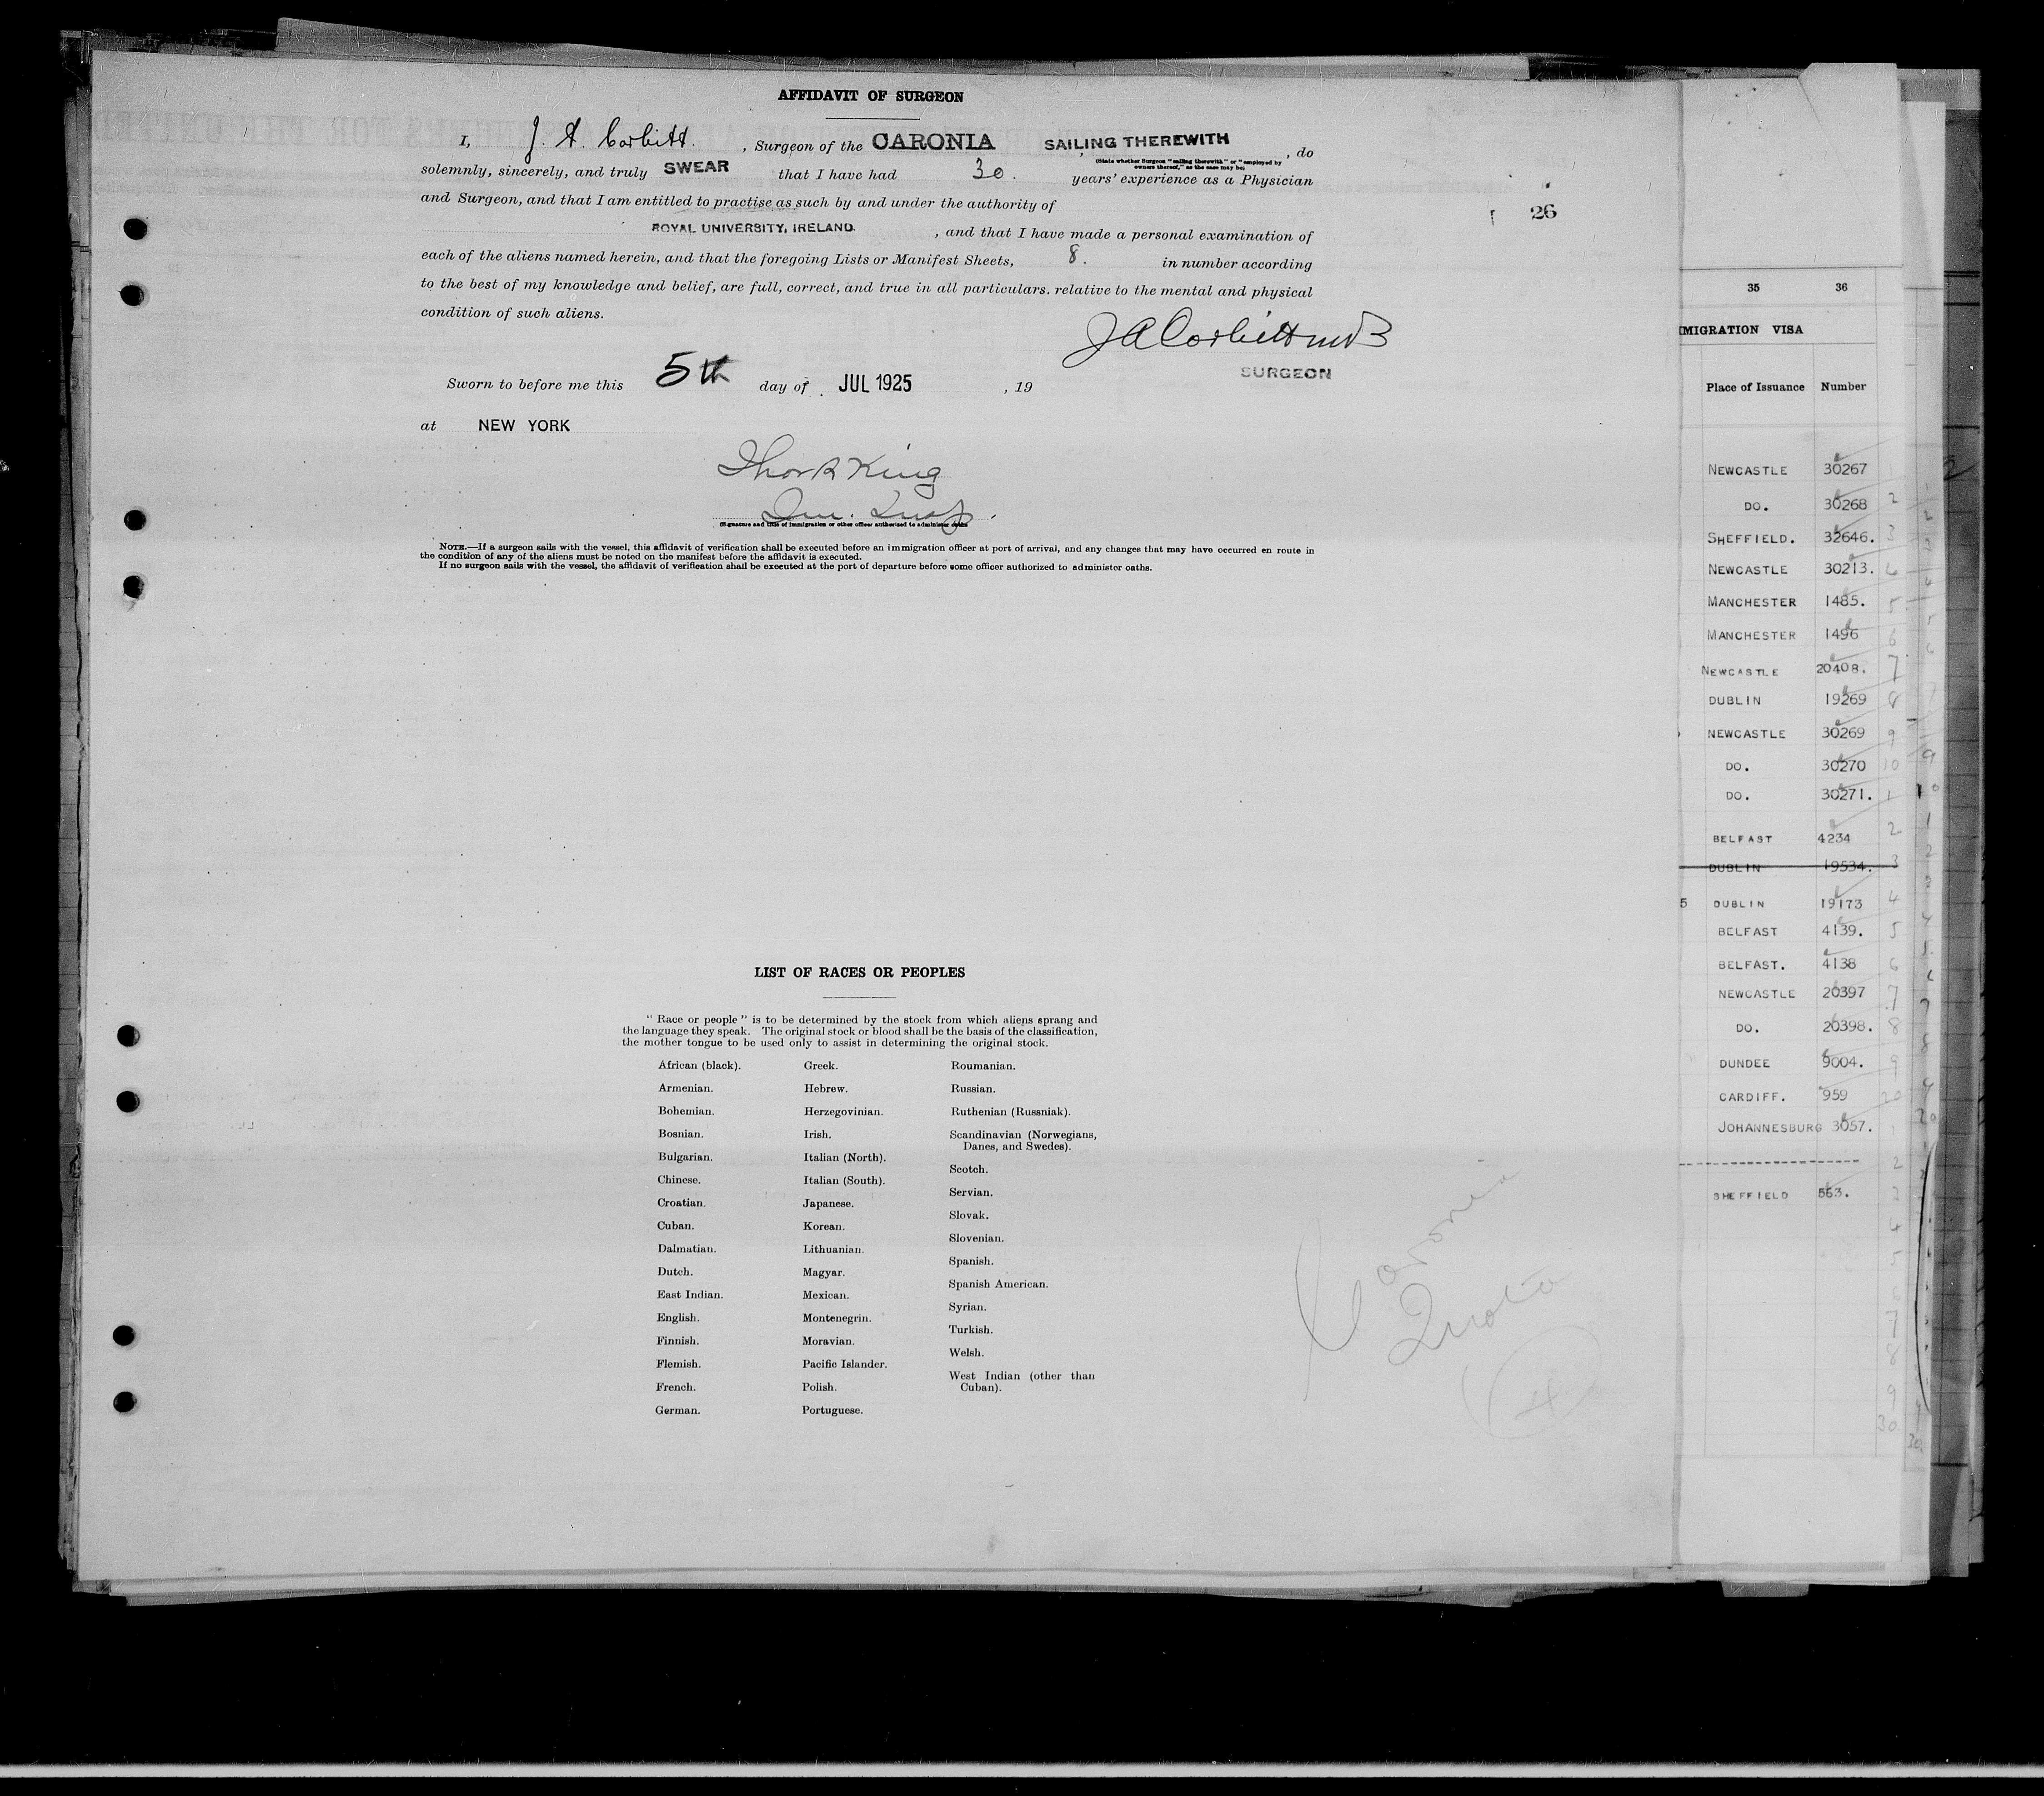 AFFIDAVIT OF SURGEON
I, J. A. Corbitt. , Surgeon of the CARONIA SAILING THEREWITH , do
(State whether Surgeon "sailing therewith" or "employed by
owners thereof," as the case may be)
solemnly, sincerely, and truly SWEAR that I have had 30. years' experience as a Physician
and Surgeon, and that I am entitled to practise as such by and under the authority of
ROYAL UNIVERSITY, IRELAND. , and that I have made a personal examination of
each of the aliens named herein, and that the foregoing Lists or Manifest Sheets, 8. in number according
to the best of my knowledge and belief, are full, correct, and true in all particulars. relative to the mental and physical
condition of such aliens.
J A Corbitt MB
SURGEON
Sworn to before me this 5th day of JUL 1925 , 19
at NEW YORK
King
Im. Insp.
(Signature and title of immigration or other officer authorized to administer oaths
NOTE.—If a surgeon sails with the vessel, this affidavit of verification shall be executed before an immigration officer at port of arrival, and any changes that may have occurred en route in
the condition of any of the aliens must be noted on the manifest before the affidavit is executed.
If no surgeon sails with the vessel, the affidavit of verification shall be executed at the port of departure before some officer authorized to administer oaths.
LIST OF RACES OR PEOPLES
" Race or people " is to be determined by the stock from which aliens sprang and
the language they speak. The original stock or blood shall be the basis of the classification,
the mother tongue to be used only to assist in determining the original stock.
African (black).
Armenian.
Bohemian.
Bosnian.
Bulgarian.
Chinese.
Croatian.
Cuban.
Dalmatian.
Dutch.
East Indian.
English.
Finnish.
Flemish.
French.
German.
Greek.
Hebrew.
Herzegovinian.
Irish.
Italian (North).
Italian (South).
Japanese.
Korean.
Lithuanian.
Magyar.
Mexican.
Montenegrin.
Moravian.
Pacific Islander.
Polish.
Portuguese.
Roumanian.
Russian.
Ruthenian (Russniak).
Scandinavian (Norwegians,
Danes, and Swedes).
Scotch.
Servian.
Slovak.
Slovenian.
Spanish.
Spanish American.
Syrian.
Turkish.
Welsh.
West Indian (other than
Cuban).
Caronia
Quota
4
26
35 36
MIGRATION VISA
Place of Issuance Number
NEWCASTLE 30267 1
DO. 30268 2
SHEFFIELD. 32646. 3
NEWCASTLE 30213. 4
MANCHESTER 1485. 5
MANCHESTER 1496 6
NEWCASTLE 20408. 7
DUBLIN 19269 8
NEWCASTLE 30269 9
DO. 30270 10
DO. 30271. 1
BELFAST 4234 2
DUBLIN 19534. 3
5 DUBLIN 19173 4
BELFAST 4139. 5
BELFAST. 4138 6
NEWCASTLE 20397 7
DO. 20398. 8
DUNDEE 9004. 9
CARDIFF. 959 20
JOHANNESBURG 3057. 1
2
SHEFFIELD 563. 3
4
5
6
7
8
9
30